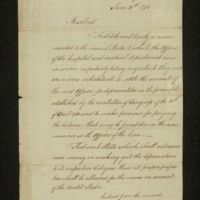 June 4th 1784
Resolved
That it be and hereby is recom-
mended to the several States to which the Officers
of the hospital and medical department now
in service respectively belong or of which they
are or were inhabitants to settle the accounts of
the said Officers for depreciation on the principles
established by the resolution of Congress of the 10th
of April 1780 and to make provision for paying
the balances that may be found due in the same
manner as the Officers of the line.
That each State which shall advance
any money in making good the depreciation
to its respective Citizens
shall be allowed for the same in account
of the United States.
Extract from the minutes